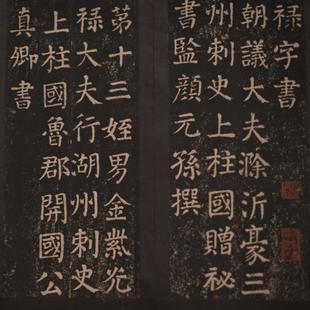 禄字書
朝議大夫滁沂豪三
州刺史上柱國贈祕
書監顔元孫撰
第十三姪男金紫光
禄大夫行湖州刺史
上柱國魯郡開國公
真卿書